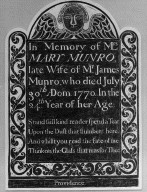 In Memory of Mrs
MARY MUNRO,
late Wife of Mr. James
Munro, who died July
30th. Dom. 1770. In the
24th Year of her Age.
Stand still kind reader spend a Tear
Upon the Dust that slumbers here.
And whilst you read the fate of me
Think on the Glass that runs for Thee
Providence